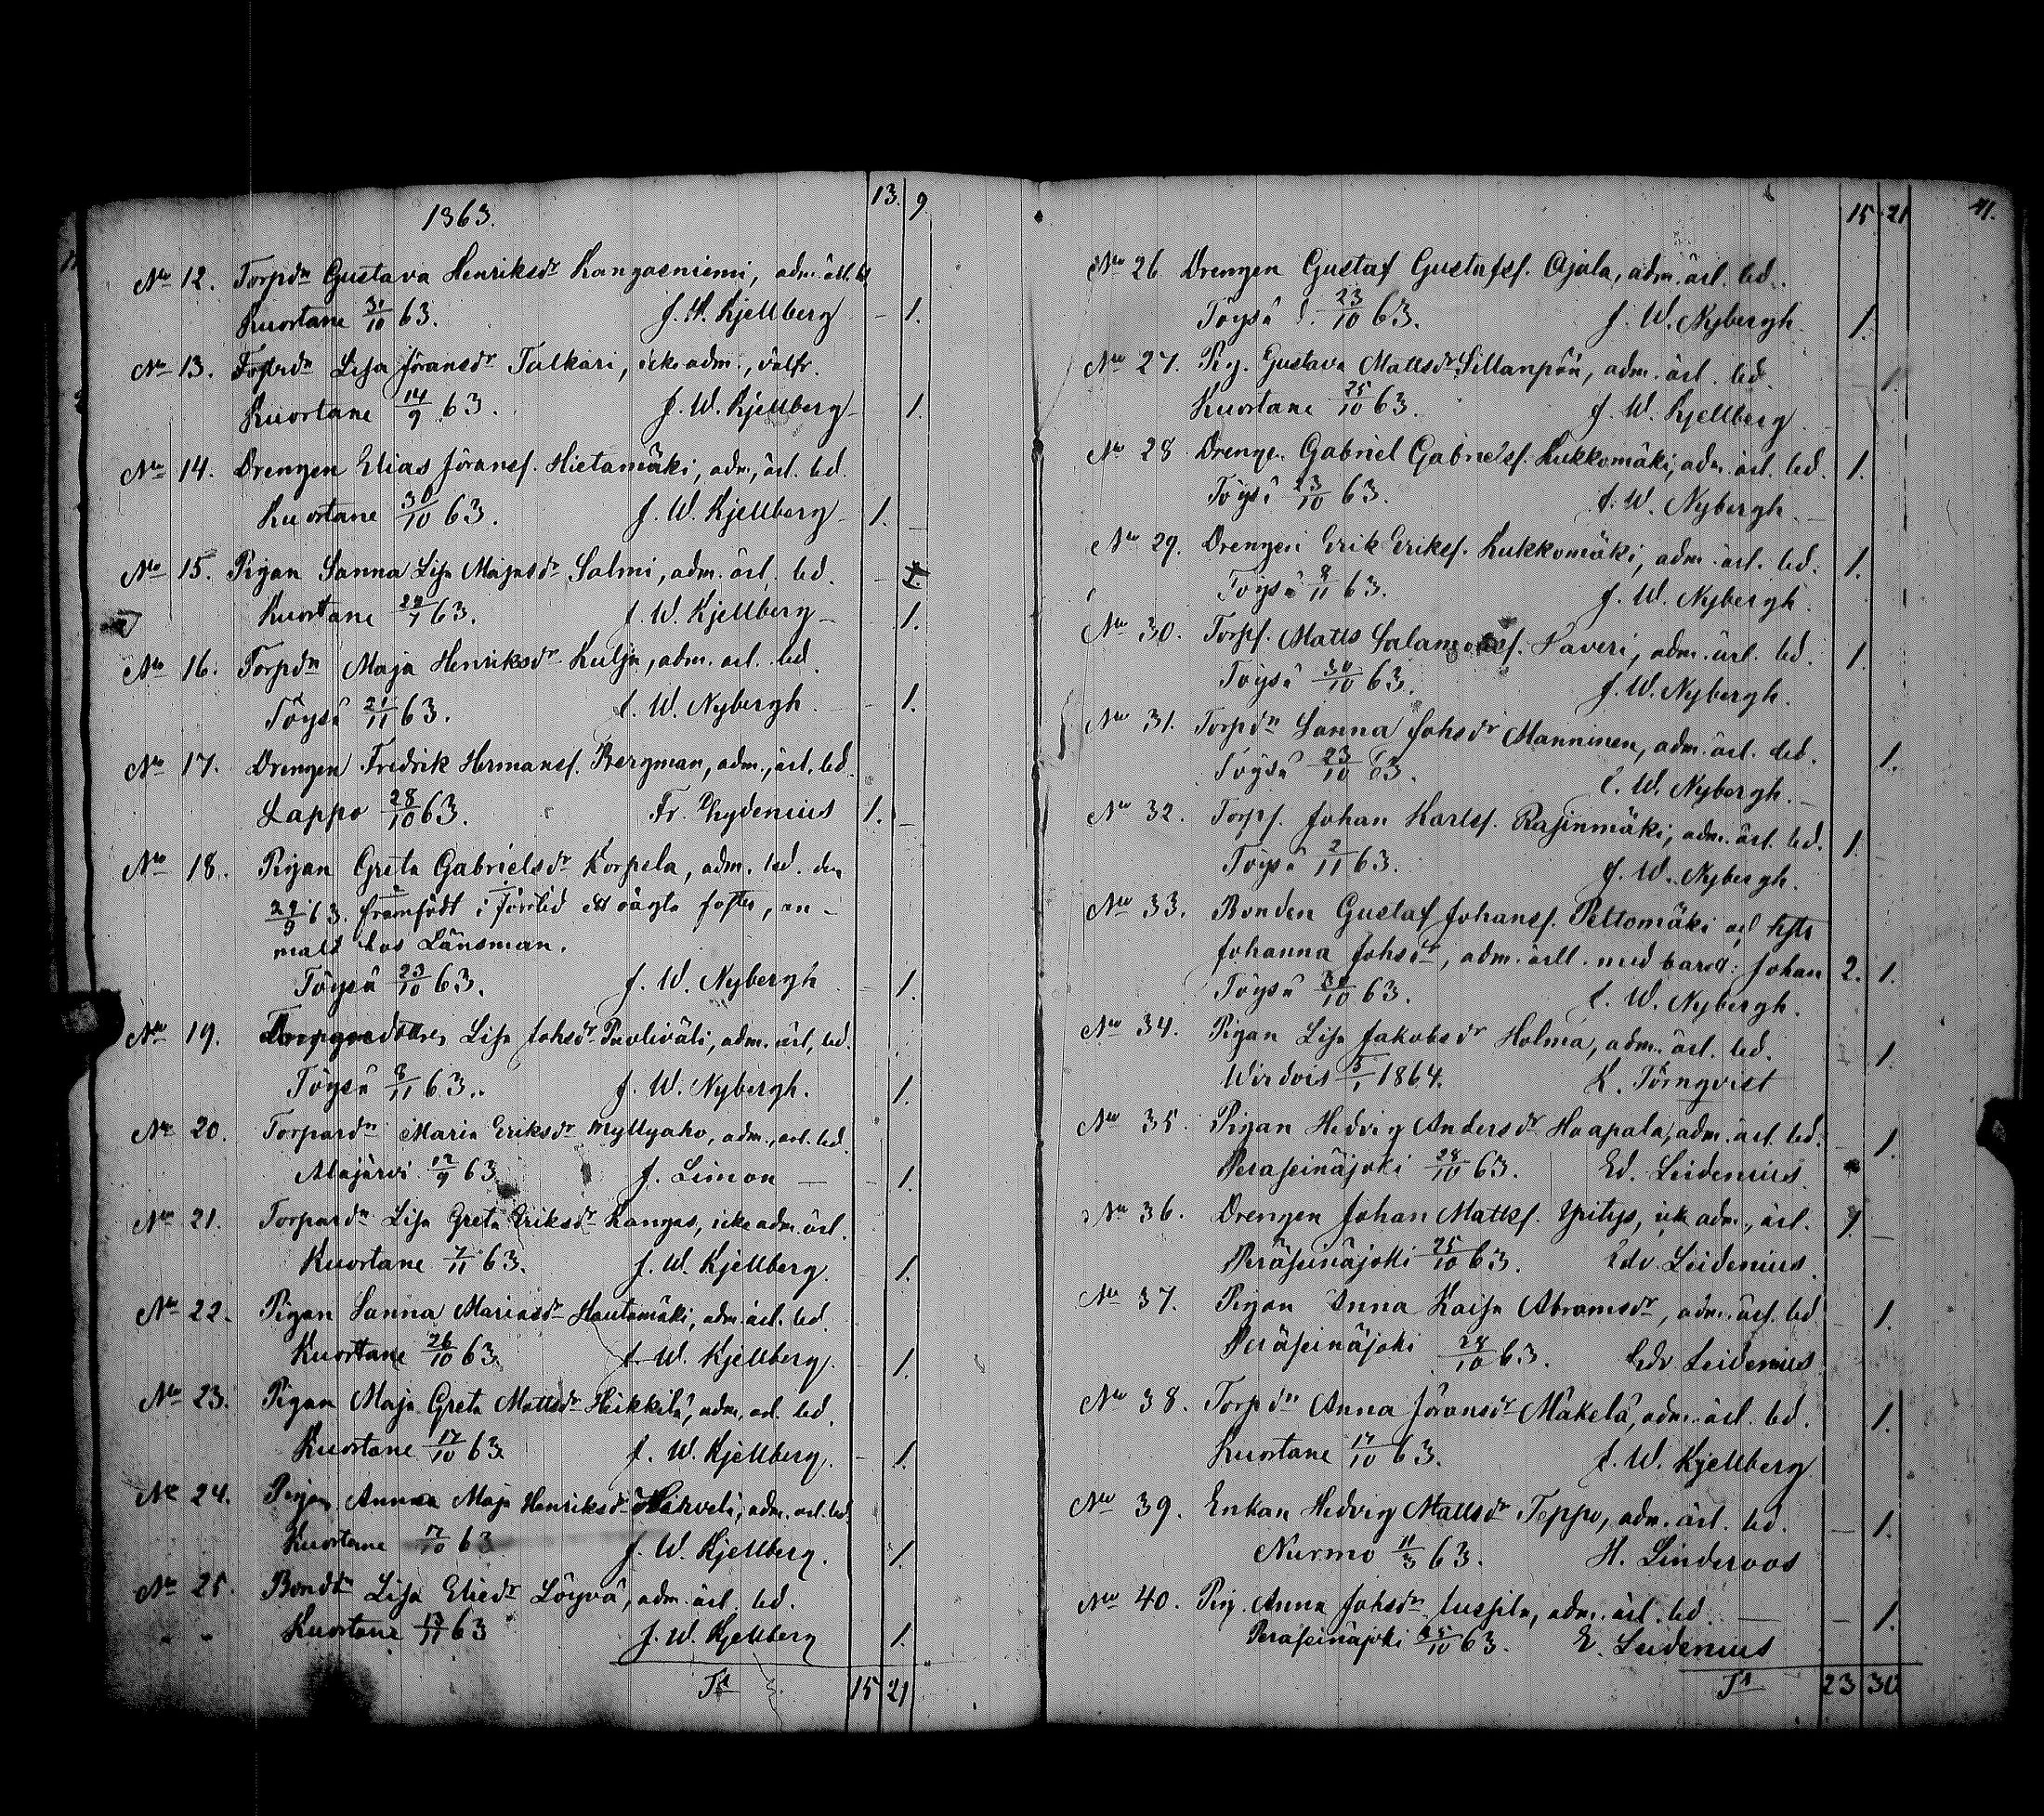 1863. 13. 9.
No 12. Torpdn Gustava Henriksdr Kangasniemi, adm. ärl. led
Kuortane 31/10 63. J. W. Kjellberg - 1.
No 13. Torpdn Lisa Jöransdr Talkari, icke adm., välfr.
Kuortane 14/9 63. J. W. Kjellberg - 1.
No 14. Drengen Elias Göransf. Hietamäki, adm., ärl. led.
Kuortane 30/10 63. J. W. Kjellberg - 1. -
No 15. Pigan Sanna Lisa Majasdr Salmi, adm. ärl. led. - 1.
Kuortane 29/7 63. J. W. Kjellberg - 1.
No 16. Torpdn Maja Henriksdr Kulja, adm. ärl. led.
Töysä 21/11 63. J. W. Nybergh. - 1.
No 17. Drengen Fredrik Hermansf. Bergman, adm., ärl. led.
Lappo 28/10 63. Fr. Chydenius 1. -
No 18. Pigan Greta Gabrielsdr Korpela, adm. led. den
29/9 63. framfödt i förtid ett oägta foster, an-
malt hos Länsman.
Töysä 23/10 63. J. W. Nybergh - 1.
No 19. Lisa Johsdr Puoliväli, adm. ärl. led.
Töysä 8/11 63. J. W. Nybergh. 1.
No 20. Torpardn Maria Eriksdr Myllyaho, adm., ärl. led.
Alajärvi 12/9 63 J. Limon - 1.
No 21. Torpardn Lisa Greta Eriksdr Kangas, icke adm. ärl.
Kuortane 7/11 63. J. W. Kjellberg. 1.
No 22. Pigan Sanna Mariasdr Hautamäki, adm. ärl. led.
Kuortane 26/10 63. J. W. Kjellberg. - 1.
No 23. Pigan Maja Greta Mattsdr Heikkilä, adm. ärl. led.
Kuortane 17/10 63 J. W. Kjellberg. - 1.
No 24. Pigan Anna Maja Henriksdr adm. ärl. led.
Kuortane 17/10 63 J. W. Kjellberg. 1.
No 25. Bondd Lisa Eliedr Löyvä, adm. ärl. led.
Kuortane 13/11 63 J. W. Kjellberg 1.
Tr 15 21
15 21 41.
No 26 Drengen Gustaf Gustafsf. Ojala, adm. ärl. led.
Töysä d. 23/10 63. J. W. Nybergh. 1.
No 27. Pig. Gustava Mattsdr Sillanpää, adm. ärl. led. - 1.
Kuortane 25/10 63. J. W. Kjellberg
No 28 Drenge. Gabriel Gabrielsf. Kukkomäki, adm. ärl. led. 1.
Töysä 23/10 63. J. W. Nybergh. -
No 29. Drengen Erik Eriksf. Kukkomäki, adm. ärl. led. 1.
Töysä 8/11 63. J. W. Nybergh.
No 30. Torpf. Matts Salamonsf. Haveri, adm. ärl. led. 1.
Töysä 30/10 63. J. W. Nybergh.
No 31. Torpdn Sanna Johsdr Manninen, adm. ärl. led. 1.
Töysä 23/10 63. J. W. Nybergh. -
No 32. Torpf. Johan Karlsf. Rajinmäki, adm. ärl. led. 1.
Töysä 2/11 63. J. W. Nybergh.
No 33. Bonden Gustaf Johansf. Peltomäki och hstr
Johanna Johsdr, adm. ärll. med barn: Johan 2. 1.
Töysä 31/10 63. J. W. Nybergh.
No 34. Pigan Lisa Jakobsdr Holma, adm. ärl. led. 1.
Wirdois 5/1 1864. K. Törnqvist
No 35. Pigan Hedvig Andersdr Haapala, adm. ärl. led. - 1.
Peraseinäjoki 28/10 63. Ed. Leidenius.
No 36. Drengen Johan Mattsf. Ypitys, ick adm., ärl. 1. -
Peräseinäjoki 25/10 63. Edv. Leidenius.
No 37. Pigan Anna Kaisa Abramsdr, adm. ärl. led - 1.
Peräseinäjoki 24/10 63. Edv Leidenius
No 38. Torpdn Anna Göransdr Mäkelä, adm. ärl. led. 1.
Kuortane 17/10 63. J. W. Kjellberg
No 39. Enkan Hedvig Mattsdr Teppo, adm. ärl. led. - 1.
Nurmo 11/3 63. H. Linderoos
No 40. Pig. Anna Johsdr Luspila, adm. ärl. led - - 1.
Peraseinäjoki 25/10 63. E. Leidenius
Tr 23 30